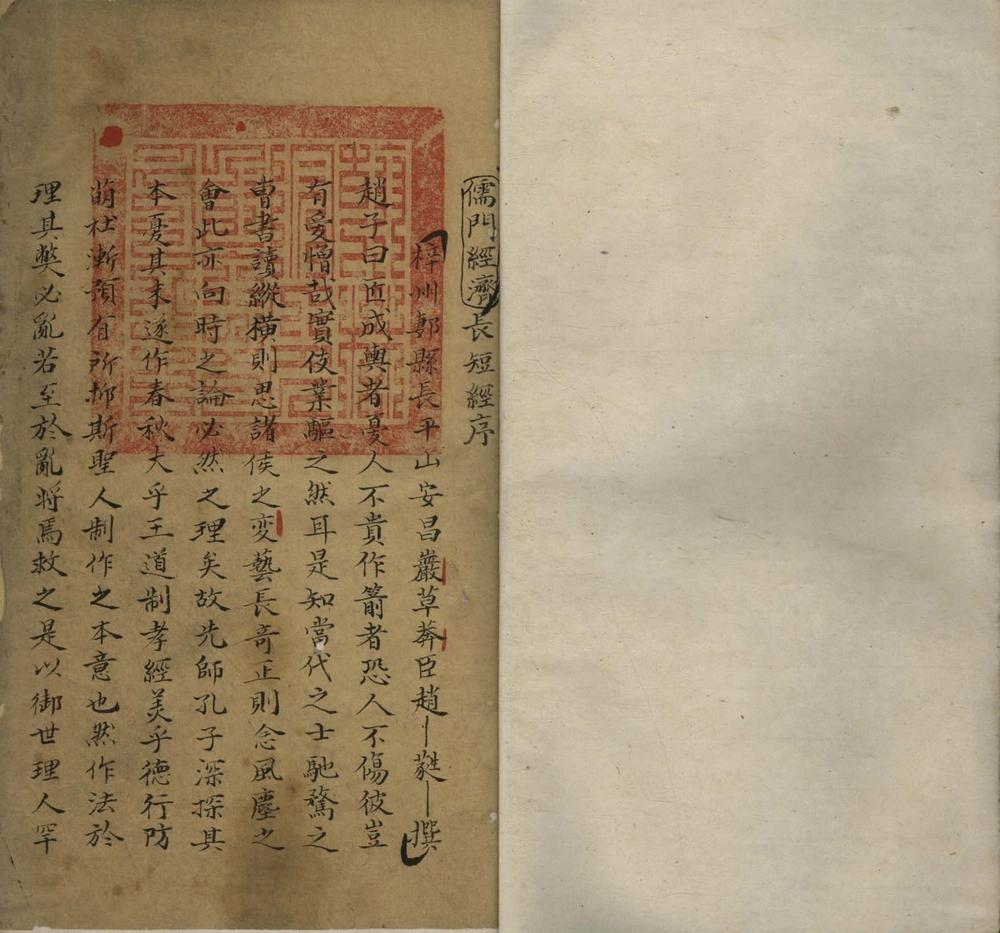 儒門經濟長短經序
梓州郪縣長平山安昌巖草莽臣趙蕤撰
趙子曰匠成輿者憂人不貴作箭者恐人不傷彼豈
有愛憎哉實伎業驅之然耳是知當代之士馳騖之
曹書讀縱橫則思諸侯之変藝長奇正則念風塵之
會此亦向時之論必然之理矣故先師孔子深探其
本憂其末遂作春秋大乎王道制孝經美乎德行防
萌杜漸預有所抑斯聖人制作之本意也然作法於
理其弊必亂若至於亂將焉救之是以御世理人罕